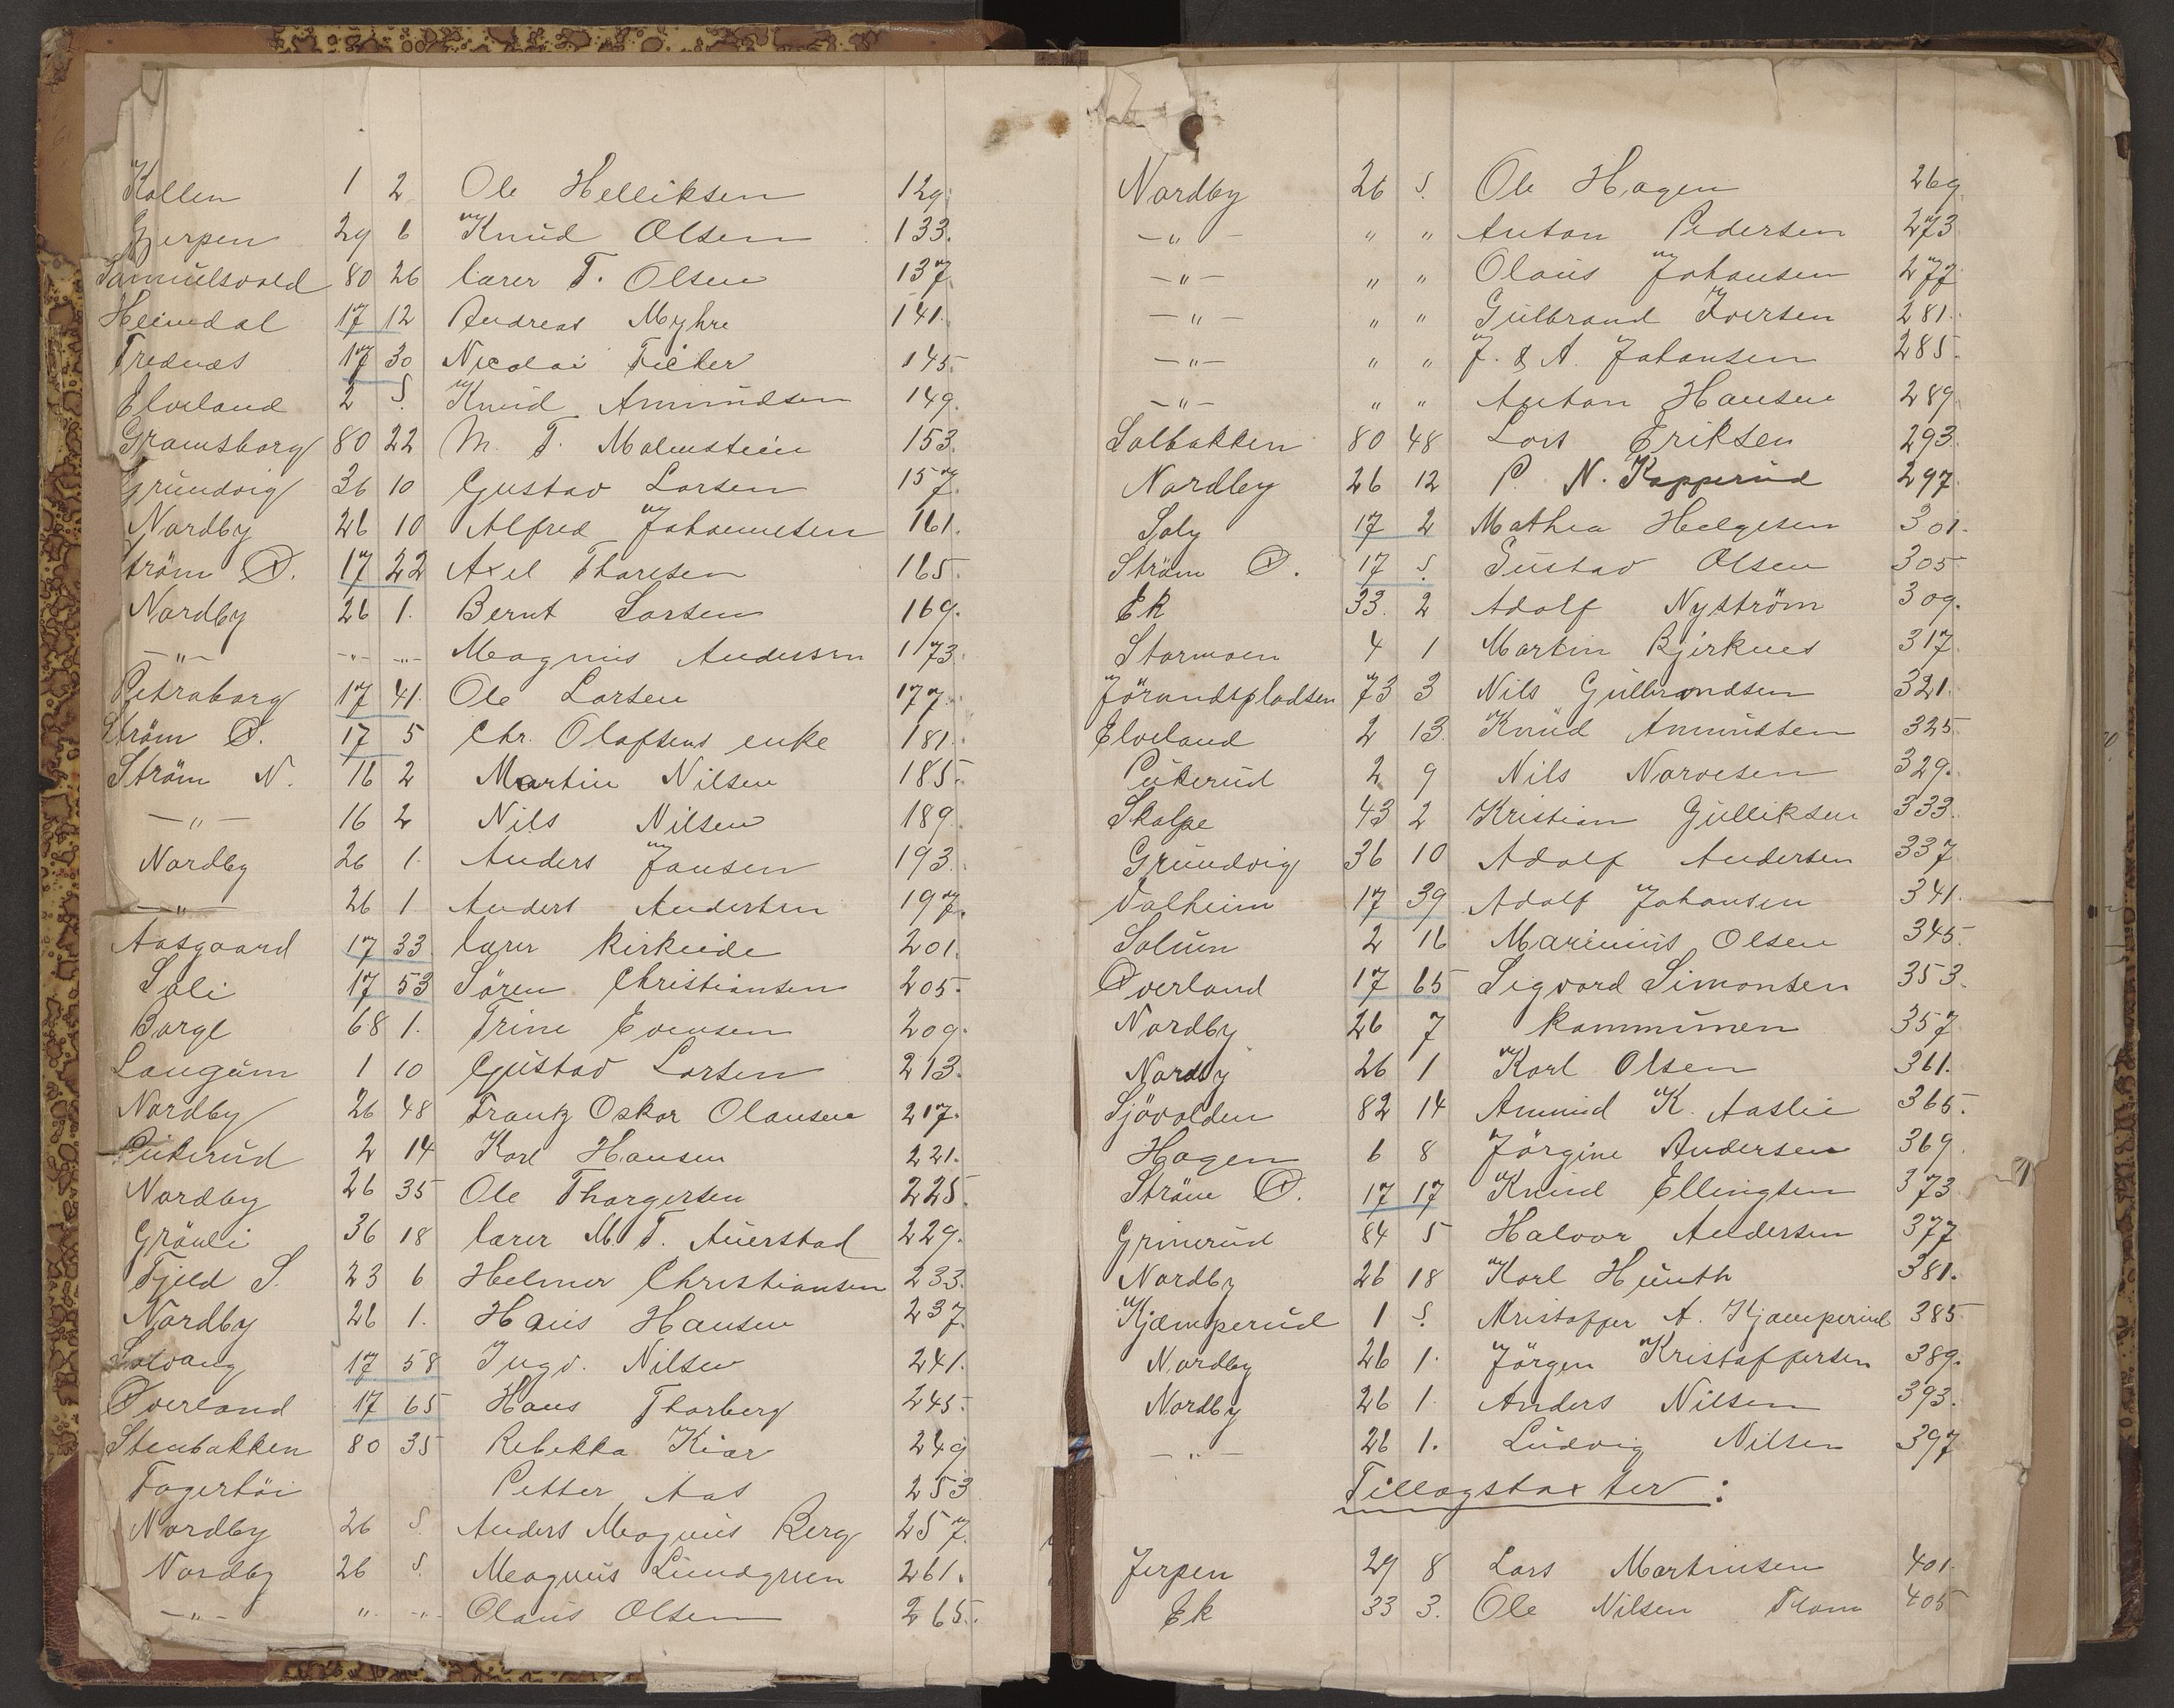 Kollen 1 2 Ole Helliksen 129.
Gjerpen 29 6 Knud Olsen 133.
Samuelsvold 80 26 lærer T. Olsen 137.
Heimdal 17 12 Andreas Myhre 141.
Frednæs 17 30 Nicolai 145.
Elveland 2 S. Knud Amundsen 149.
Gramsborg 80 22 M. T. Malmstein 153.
Grundvig 36 10 Gustav Larsen 157.
Nordby 26 10 Alfred Johannesen 161.
Ström Ø. 17 22 Axel Thoresen 165.
Nordby 26 1. Bernt Larsen 169.
—"— -"- -"- Magnus Andersen 173.
Petraborg 17 41. Ole Larsen 177.
Ström Ø. 17 5 Chr. Olafsens enke 181.
Ström N. 16 2 Martin Nilsen 185.
—"— 16 2 Nils Nilsen 189.
Nordby 26 1. Anders Jansen 193.
—"— 26 1 Anders Andersen 197.
Aasgaard 17 33. lærer Kirkeide 201.
Soli 17 53 Sören Christiansen 205.
Borge 68 1. Trine Evensen 209.
Langum 1 10 Gustav Larsen 213.
Nordby 26 48 Frantz Oskar Olausen 217.
Puterud 2 14 Karl Hansen 221.
Nordby 26 35 Ole Thorgersen 225.
Grönli 36 18 lærer M. T. Auerstad 229.
Fjeld S. 23 6 Helmer Christiansen 233.
Nordby 26 1. Hans Hansen 237.
Solvang 17 58 Ingv. Nilsen 241.
Øverland 17 65 Hans Thorberg 245.
Stenbakken 80 35 Rebekka Kiær 249
Fagerhöi Petter Aas 253
Nordby 26 S. Anders Magnus Berg 257.
Nordby 26 S. Magnus Lundgren 261.
—"— " -"- Olaus Olsen 265.
Nordby 26 S. Ole Hagen 269
—"— " " Anton Pedersen 273
—"— " " Olaus Johansen 277
—"— " " Gulbrand Iversen 281.
—"— " " J. & A. Johansen 285.
—"— " " Anton Hansen 289.
Solbakken 80 48 Lars Eriksen 293.
Nordby 26 12 P. N. Kopperud 297.
Soly 17 2 Mathea Helgesen 301.
Ström Ø. 17 S. Gustav Olsen 305
Ek 33. 2 Adolf Nyström 309.
Stormoen 4 1 Martin Bjerknes 317.
Jörandspladsen 73 3 Nils Gulbrandsen 321.
Elveland 2 13. Knud Amundsen 325.
Puterud 2 9 Nils Narvesen 329.
Skolpe 43 2 Kristian Gulliksen 333.
Grundvig 36 10 Adolf Andersen 337
Valheim 17 39 Adolf Johansen 341.
Solum 2 16 Marinius Olsen 345.
Øverland 17 65 Sigvard Simonsen 353.
Nordby 26 7 kommunen 357
Nordby 26 1 Karl Olsen 361.
Sjövolden 82 14 Amund K. Aaslie 365.
Hagen 6 8 Jörgine Andersen 369.
Ström Ø. 17 17 Knud Ellingsen 373
Grinerud 84 5 Halvor Andersen 377
Nordby 26 18 Karl Hünth 381.
Kjæmperud 1 S. Kristoffer A. Kjæmperud 385
Nordby 26 1. Jörgen Kristoffersen 389.
Nordby 26 1. Anders Nilsen 393.
—"— 26 1. Ludvig Nilsen 397
Tillægstaxter:
Jerpen 29 8 Lars Martinsen 401.
Ek 33 3. Ole Nilsen 405